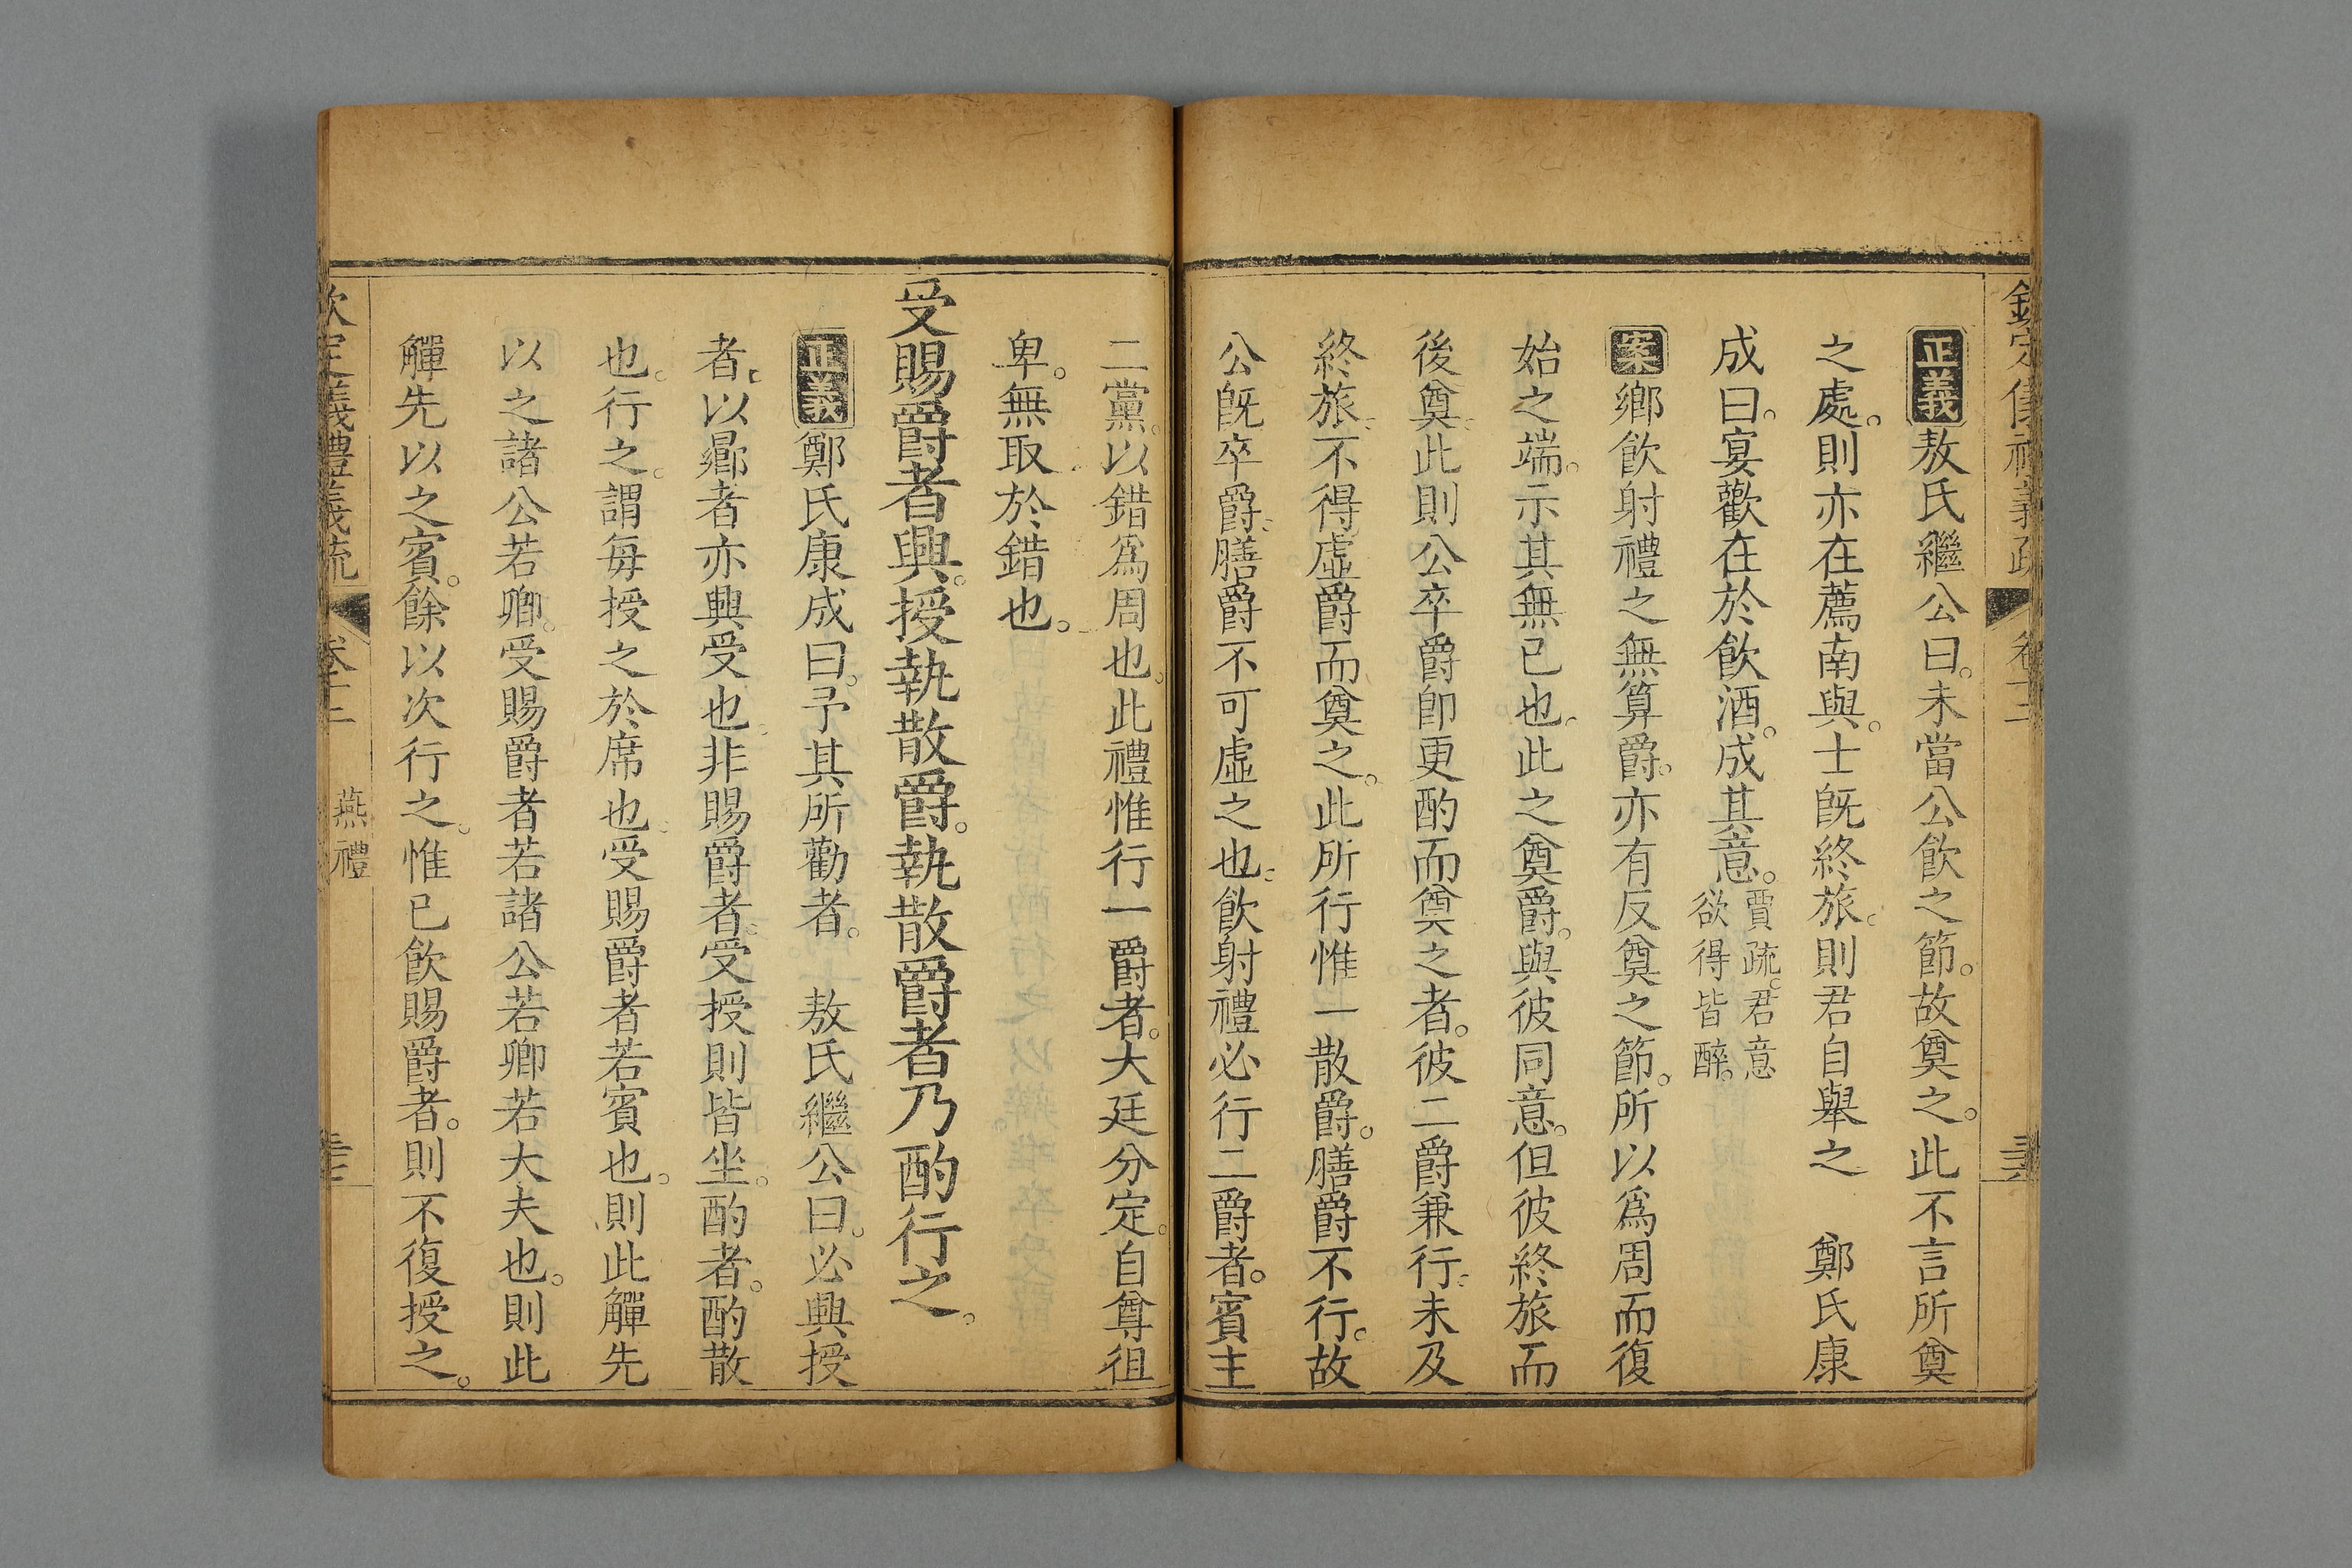 欽定儀禮義疏 卷十二
正義敖氏繼公曰。未當公飲之節。故奠之。此不言所奠
之處。則亦在薦南與。士旣終旅。則君自舉之 鄭氏康
成曰。宴歡在於飲酒。成其意。賈疏。君意欲得皆醉。
案鄉飲射禮之無算爵。亦有反奠之節。所以爲周而復
始之端。示其無已也。此之奠爵。與彼同意。但彼終旅而
後奠。此則公卒爵卽更酌而奠之者。彼二爵兼行。未及
終旅。不得虛爵而奠之。此所行惟一散爵。膳爵不行。故
公旣卒爵。膳爵不可虛之也。飲射禮必行二爵者。賓主
二黨。以錯爲周也。此禮惟行一爵者。大廷分定。自尊徂
卑。無取於錯也。
受賜爵者興。授執散爵。執散爵者乃酌行之。
正義鄭氏康成曰。予其所勸者。 敖氏繼公曰。必興授
者。以鄉者亦興受也。非賜爵者。受授則皆坐。酌者。酌散
也。行之。謂每授之於席也。受賜爵者若賓也。則此觶先
以之諸公若卿。受賜爵者若諸公若卿若大夫也。則此
觶先以之賓。餘以次行之。惟已飲賜爵者。則不復授之。
欽定儀禮義疏 卷十二 燕禮